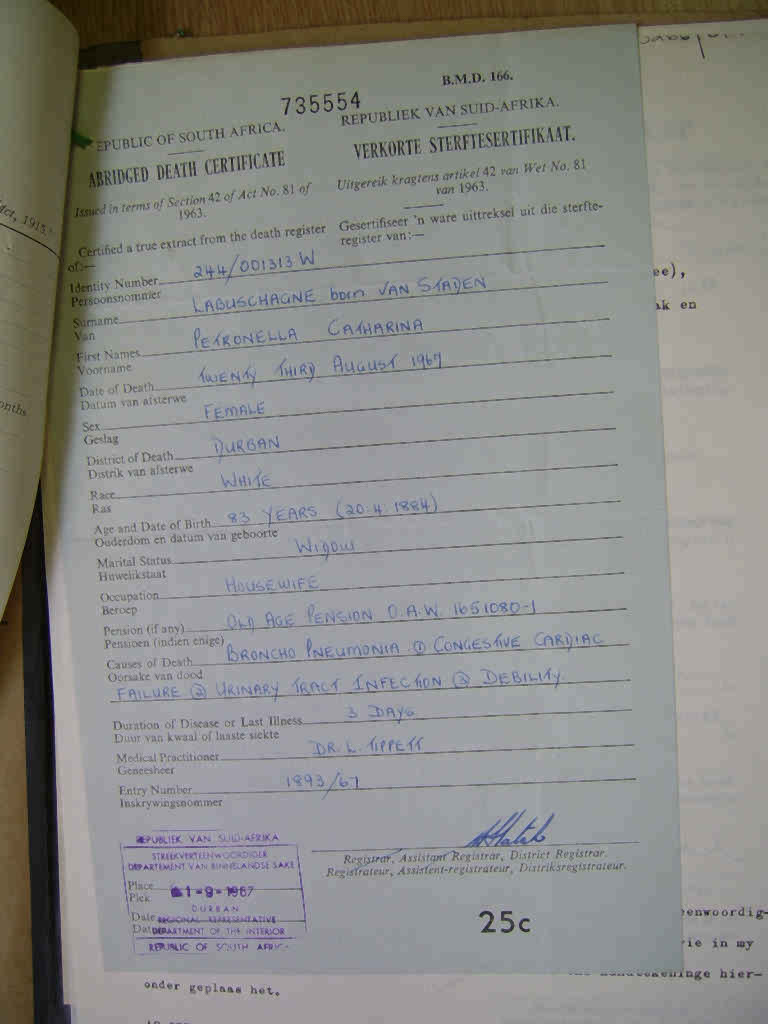 B.M.D. 166.
735554
EPUBLIC OF SOUTH AFRICA.
REPUBLIEK VAN SUID-AFRIKA.
ABRIDGED DEATH CERTIFICATE
VERKORTE STERFTESERTIFIKAAT.
Issued in terms of Section 42 of Act No. 81 of
1963.
Uitgereik kragtens artikel 42 van Wet No. 81
van 1963.
Certified a true extract from the death register
of:—
Gesertifiseer 'n ware uittreksel uit die sterfte-
register van:—
Identity Number 244/001313 W
Persoonsnommer
Surname LABUSCHAGNE born VAN STADEN
Van
First Names PETRONELLA CATHARINA
Voorname
Date of Death TWENTY THIRD AUGUST 1967
Datum van afsterwe
Sex FEMALE
Geslag
District of Death DURBAN
Distrik van afsterwe
Race WHITE
Ras
Age and Date of Birth 83 YEARS (20.4.1884)
Ouderdom en datum van geboorte
Marital Status WIDOW
Huwelikstaat
Occupation HOUSEWIFE
Beroep
Pension (if any) OLD AGE PENSION O.A.W. 1651080-1
Pensioen (indien enige)
Causes of Death BRONCHO PNEUMONIA ① CONGESTIVE CARDIAC
Oorsake van dood
FAILURE ② URINARY TRACT INFECTION ③ DEBILITY.
Duration of Disease or Last Illness 3 DAYS
Duur van kwaal of laaste siekte
Medical Practitioner DR. L. TIPPETT
Geneesheer
Entry Number 1893/67
Inskrywingsnommer
REPUBLIEK VAN SUID-AFRIKA
STREEKVERTEENWOORDIGER
DEPARTEMENT VAN BINNELANDSE SAKE
Place
Plek
1-9-1967
DURBAN
Date REGIONAL REPRESENTATIVE
DEPARTMENT OF THE INTERIOR
REPUBLIC OF SOUTH AFRIC
Registrar, Assistant Registrar, District Registrar.
Registrateur, Assistent-registrateur, Distriksregistrateur.
25c
Act, 1915.
onths
ee),
ak en
eenwoordig-
rie in my
hier-
onder geplaas het.